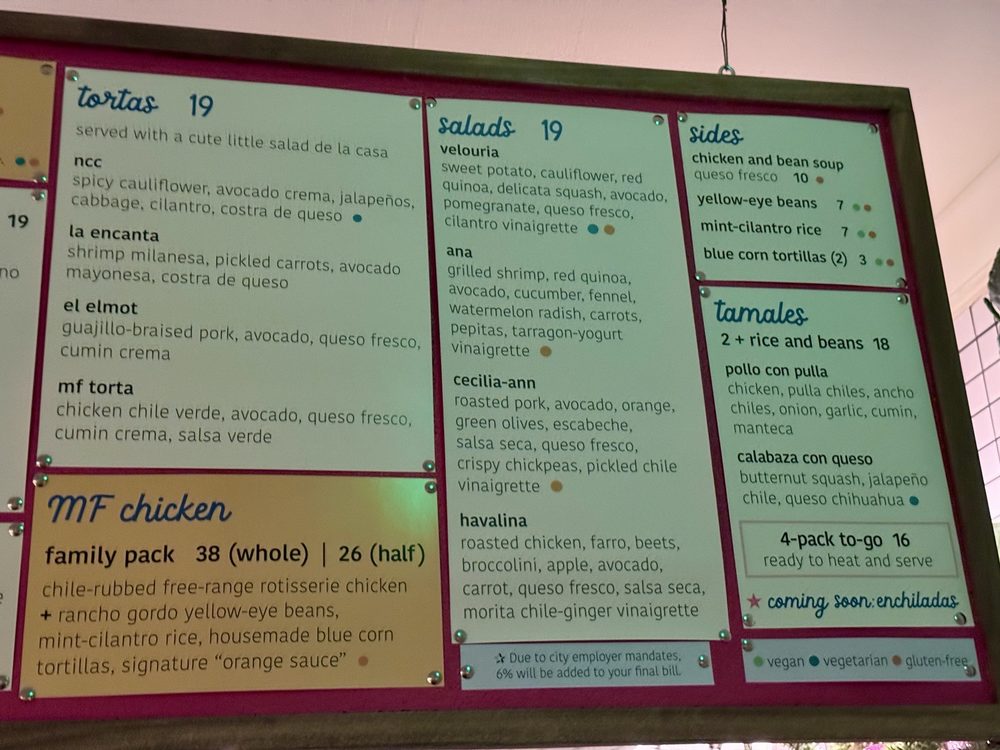 19
no
tortas 19
served with a cute little salad de la casa
ncc
spicy cauliflower, avocado crema, jalapeños,
cabbage, cilantro, costra de queso
la encanta
shrimp milanesa, pickled carrots, avocado
mayonesa, costra de queso
el elmot
guajillo-braised pork, avocado, queso fresco,
cumin crema
mf torta
chicken chile verde, avocado, queso fresco,
cumin crema, salsa verde
MF chicken
family pack 38 (whole) | 26 (half)
chile-rubbed free-range rotisserie chicken
+ rancho gordo yellow-eye beans,
mint-cilantro rice, housemade blue corn
tortillas, signature “orange sauce”
salads 19
velouria
sweet potato, cauliflower, red
quinoa, delicata squash, avocado,
pomegranate, queso fresco,
cilantro vinaigrette
ana
grilled shrimp, red quinoa,
avocado, cucumber, fennel,
watermelon radish, carrots,
pepitas, tarragon-yogurt
vinaigrette
cecilia-ann
roasted pork, avocado, orange,
green olives, escabeche,
salsa seca, queso fresco,
crispy chickpeas, pickled chile
vinaigrette
havalina
roasted chicken, farro, beets,
broccolini, apple, avocado,
carrot, queso fresco, salsa seca,
morita chile-ginger vinaigrette
☆ Due to city employer mandates,
6% will be added to your final bill.
sides
chicken and bean soup
queso fresco 10
yellow-eye beans 7
mint-cilantro rice 7
blue corn tortillas (2) 3
tamales
2 + rice and beans 18
pollo con pulla
chicken, pulla chiles, ancho
chiles, onion, garlic, cumin,
manteca
calabaza con queso
butternut squash, jalapeño
chile, queso chihuahua
4-pack to-go 16
ready to heat and serve
★ coming soon: enchiladas
vegan vegetarian gluten-free